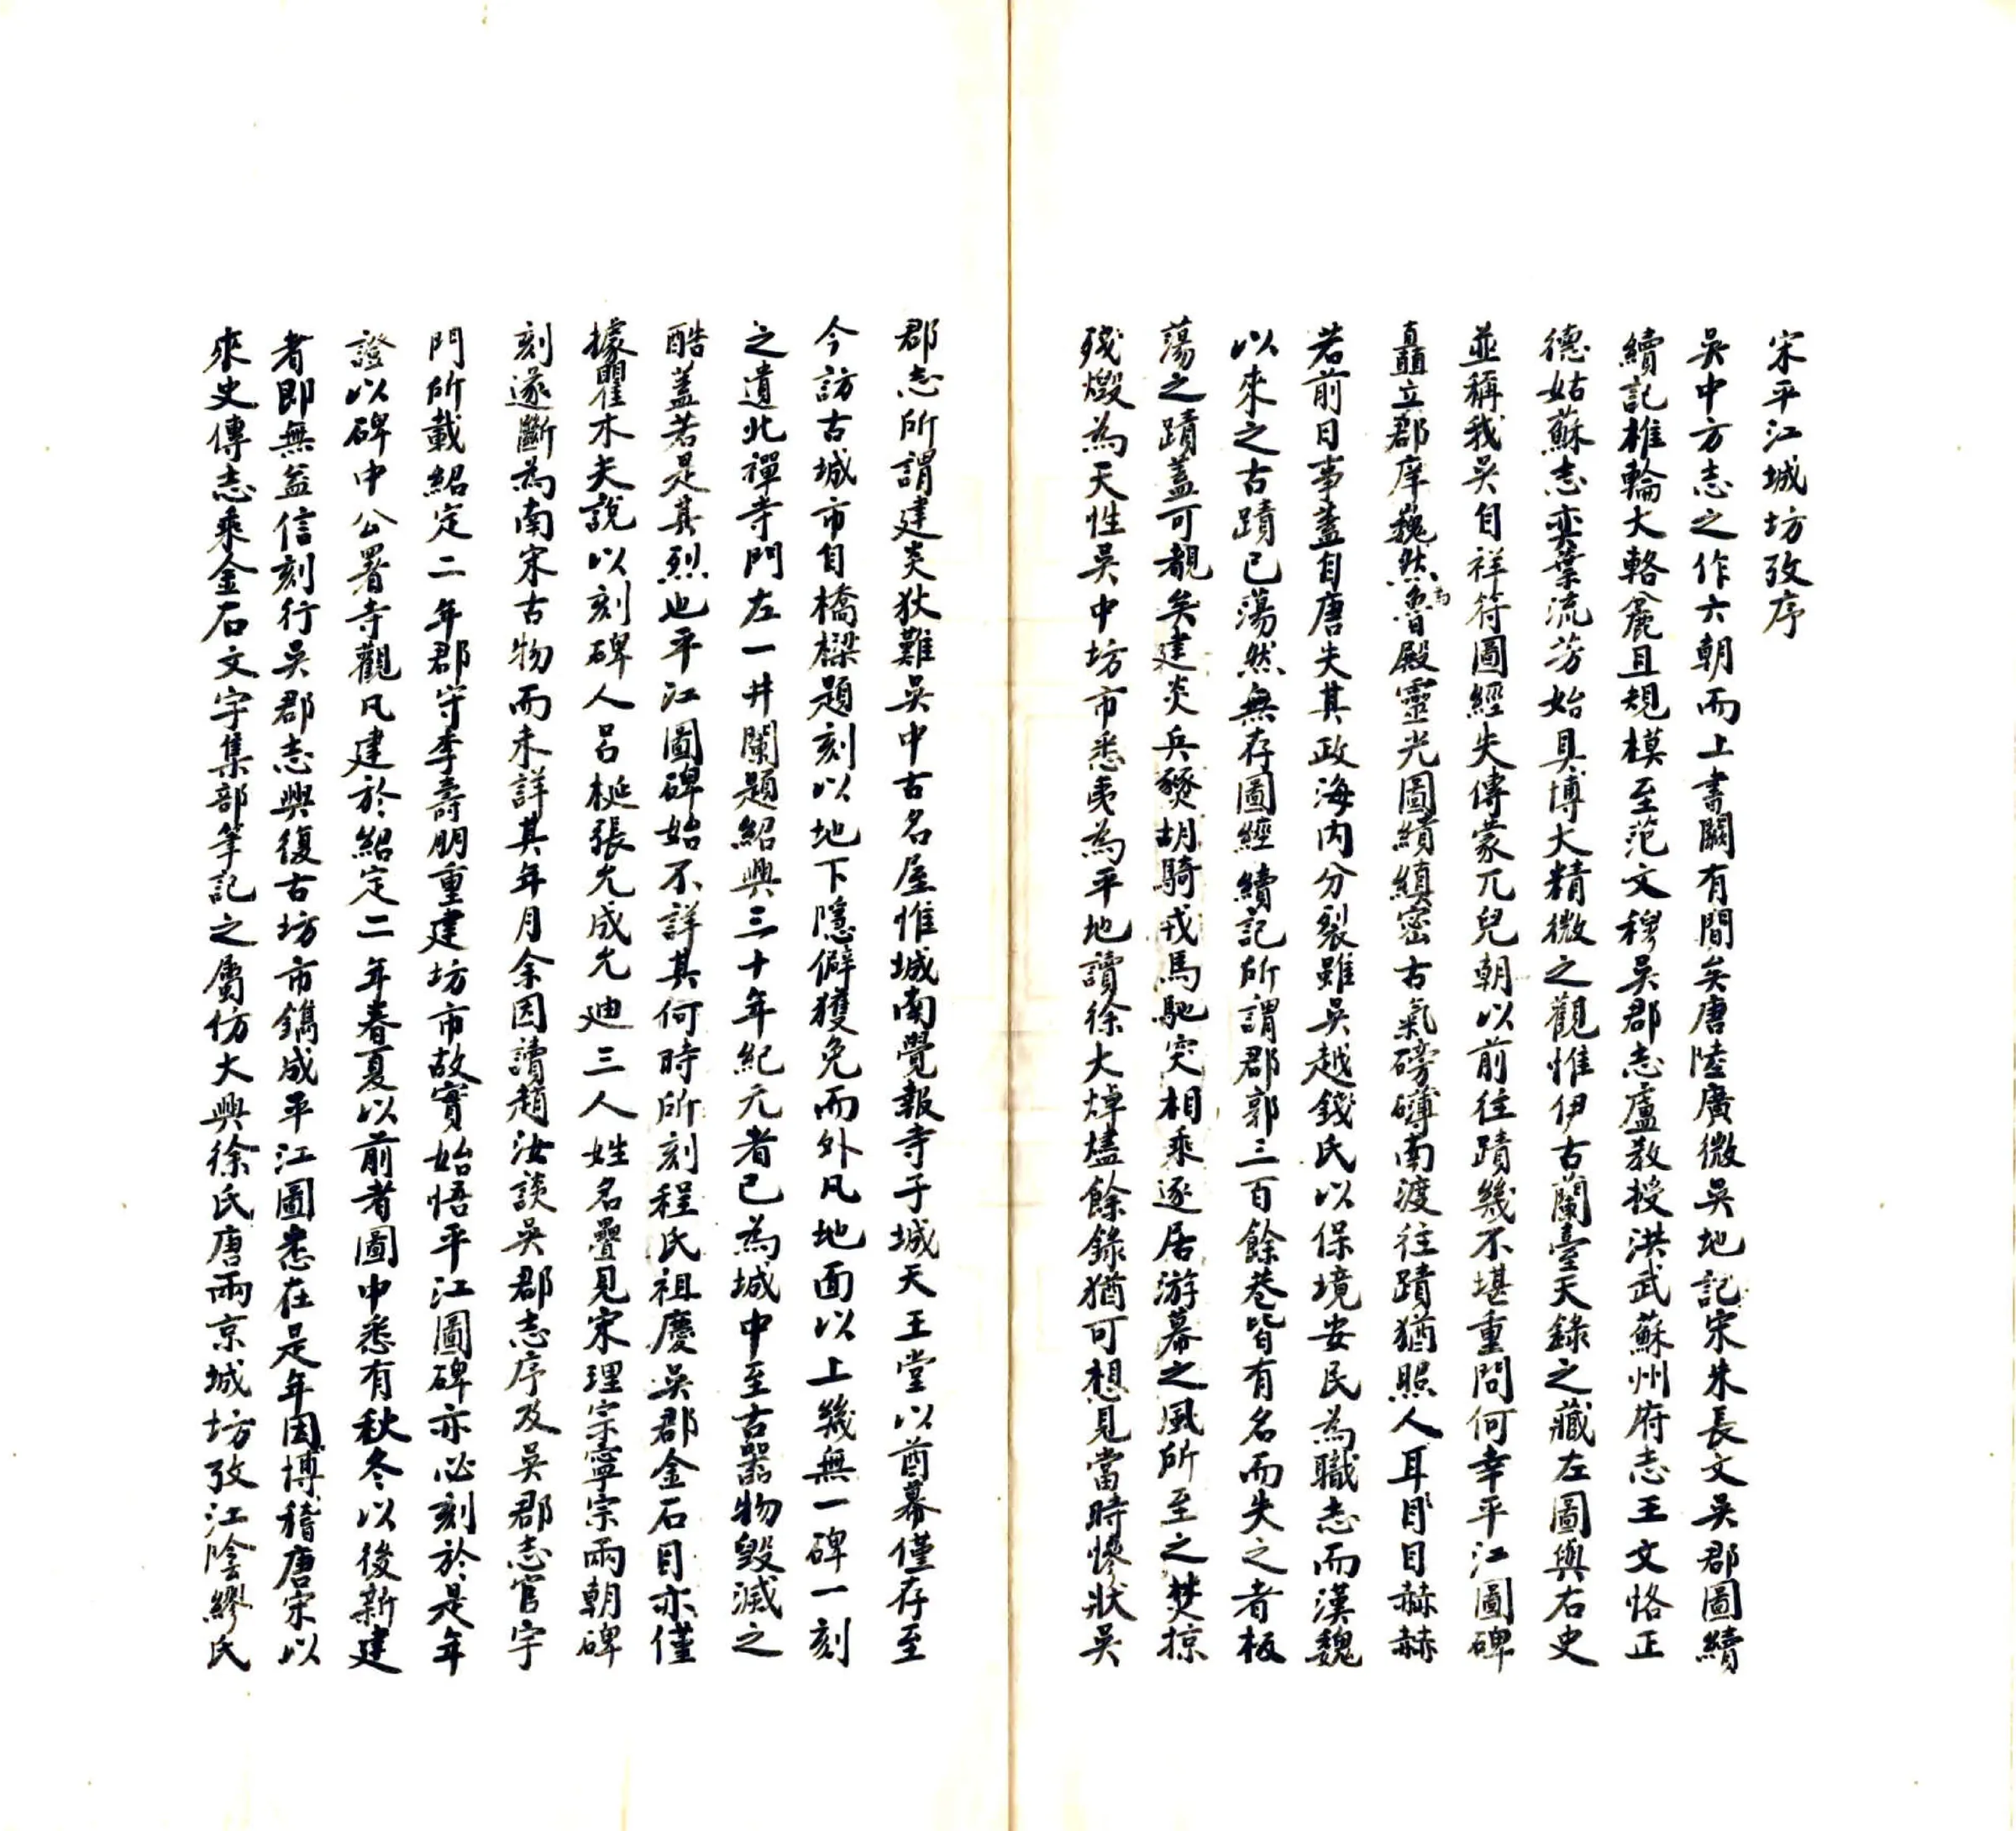 宋平江城坊攷序
吳中方志之作六朝而上書闕有間矣唐陸廣微吳地記宋朱長文吳郡圖續
續記椎輪大輅麄且規模至范文穆吳郡志盧教授洪武蘇州府志王文恪正
德姑蘇志奕葉流芳始具博大精微之觀惟伊古蘭臺天錄之藏左圖與右史
並稱我吳自祥符圖經失傳蒙兀兒朝以前往蹟幾不堪重問何幸平江圖碑
矗立郡庠巍然為魯殿靈光圖績縝密古氣磅礴南渡往蹟猶照人耳目赫赫
若前日事蓋自唐失其政海內分裂雖吳越錢氏以保境安民為職志而漢魏
以來之古蹟已蕩然無存圖經續記所謂郡郭三百餘巷皆有名而失之者板
蕩之蹟蓋可覩矣建炎兵燹胡騎戎馬馳突相乘逐居游幕之風所至之焚掠
殘燬為天性吳中坊市悉夷為平地讀徐大焯燼餘錄猶可想見當時慘狀吳
郡志所謂建炎狄難吳中古名屋惟城南覺報寺子城天王堂以酋幕僅存至
今訪古城市自橋樑題刻以地下隱僻獲免而外凡地面以上幾無一碑一刻
之遺北禪寺門左一井闌題紹興三十年紀元者已為城中至古器物毀滅之
酷蓋若是其烈也平江圖碑始不詳其何時所刻程氏祖慶吳郡金石目亦僅
據瞿木夫說以刻碑人呂梴張允成允迪三人姓名疊見宋理宗寧宗兩朝碑
刻遂斷為南宋古物而未詳其年月余因讀趙汝談吳郡志序及吳郡志官宇
門所載紹定二年郡守李壽朋重建坊市故實始悟平江圖碑亦必刻於是年
證以碑中公署寺觀凡建於紹定二年春夏以前者圖中悉有秋冬以後新建
者即無益信刻行吳郡志與復古坊市鐫成平江圖悉在是年因博稽唐宋以
來史傳志乘金石文字集部筆記之屬仿大興徐氏唐兩京城坊攷江陰繆氏